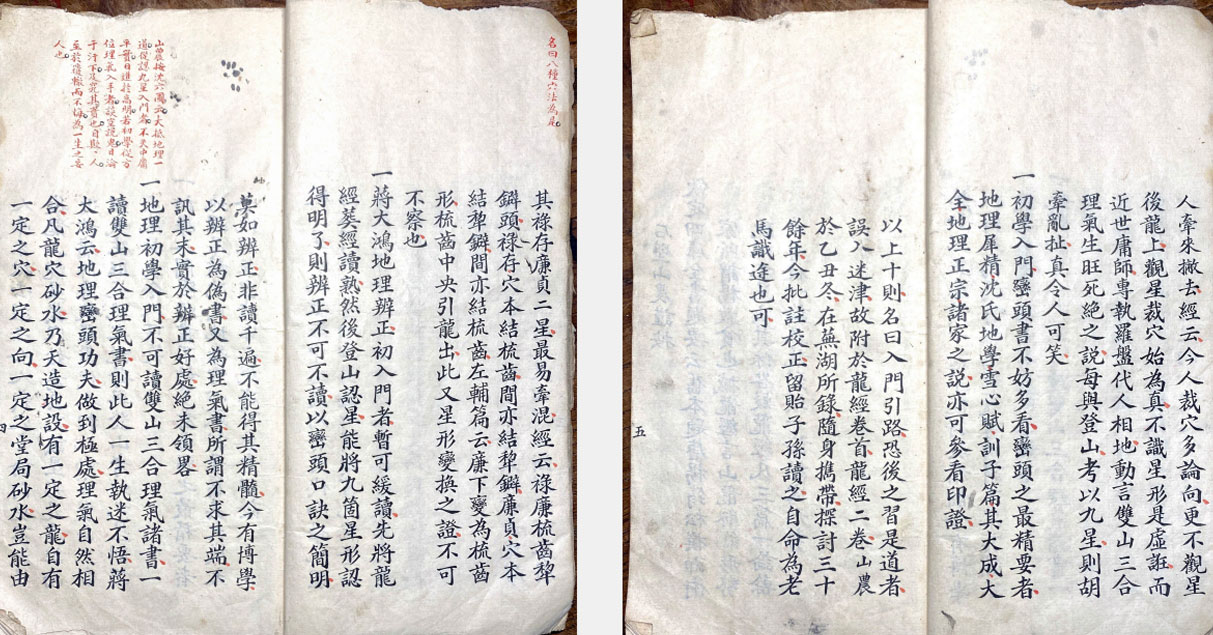 名曰八種穴法為是
其祿存廉貞二星最易牽混經云祿廉梳齒犂
鐴頭祿存穴本結梳齒間亦結犂鐴廉貞穴本
結犂鐴間亦結梳齒左輔篇云廉下變為梳齒
形梳齒中央引龍出此又星形變換之證不可
不察也
一蔣大鴻地理辨正初入門者暫可緩讀先將龍
經葬經讀熟然後登山認星能將九箇星形認
得明了則辨正不可不讀以巒頭口訣之簡明
山農按沈六圃云大抵地理一
道從課九星入門者不失中庸
平實日進於高明若初學從方
位理氣入手者談空說鬼日淪
于汙下及究其實也自欺人
至於覆轍而不悔為一生之妄
人也
莫如辨正非讀千遍不能得其精髓今有博學
以辨正為偽書又為理氣書所謂不求其端不
訊其末實於辨正好處絕未領畧
一地理初學入門不可讀雙山三合理氣諸書一
讀雙山三合理氣書則此人一生執迷不悟蔣
大鴻云地理巒頭功夫做到極處理氣自然相
合凡龍穴砂水乃天造地設有一定之龍自有
一定之穴一定之向一定之堂局砂水豈能由
四
人牽來撇去經云今人裁穴多論向更不觀星
後龍上觀星裁穴始為真不識星形是虛誑而
近世庸師專執羅盤代人相地動言雙山三合
理氣生旺死絕之說每與登山考以九星則胡
牽亂扯真令人可笑
一初學入門巒頭書不妨多看巒頭之最精要者
地理犀精沈氏地學雪心賦訓子篇其大成大
全地理正宗諸家之説亦可參看印證
以上十則名曰入門引路恐後之習是道者
誤入迷津故附於龍經卷首龍經二卷山農
於乙丑冬在蕪湖所錄隨身攜帶探討三十
餘年今批註校正留貽子孫讀之自命為老
馬識途也可
五